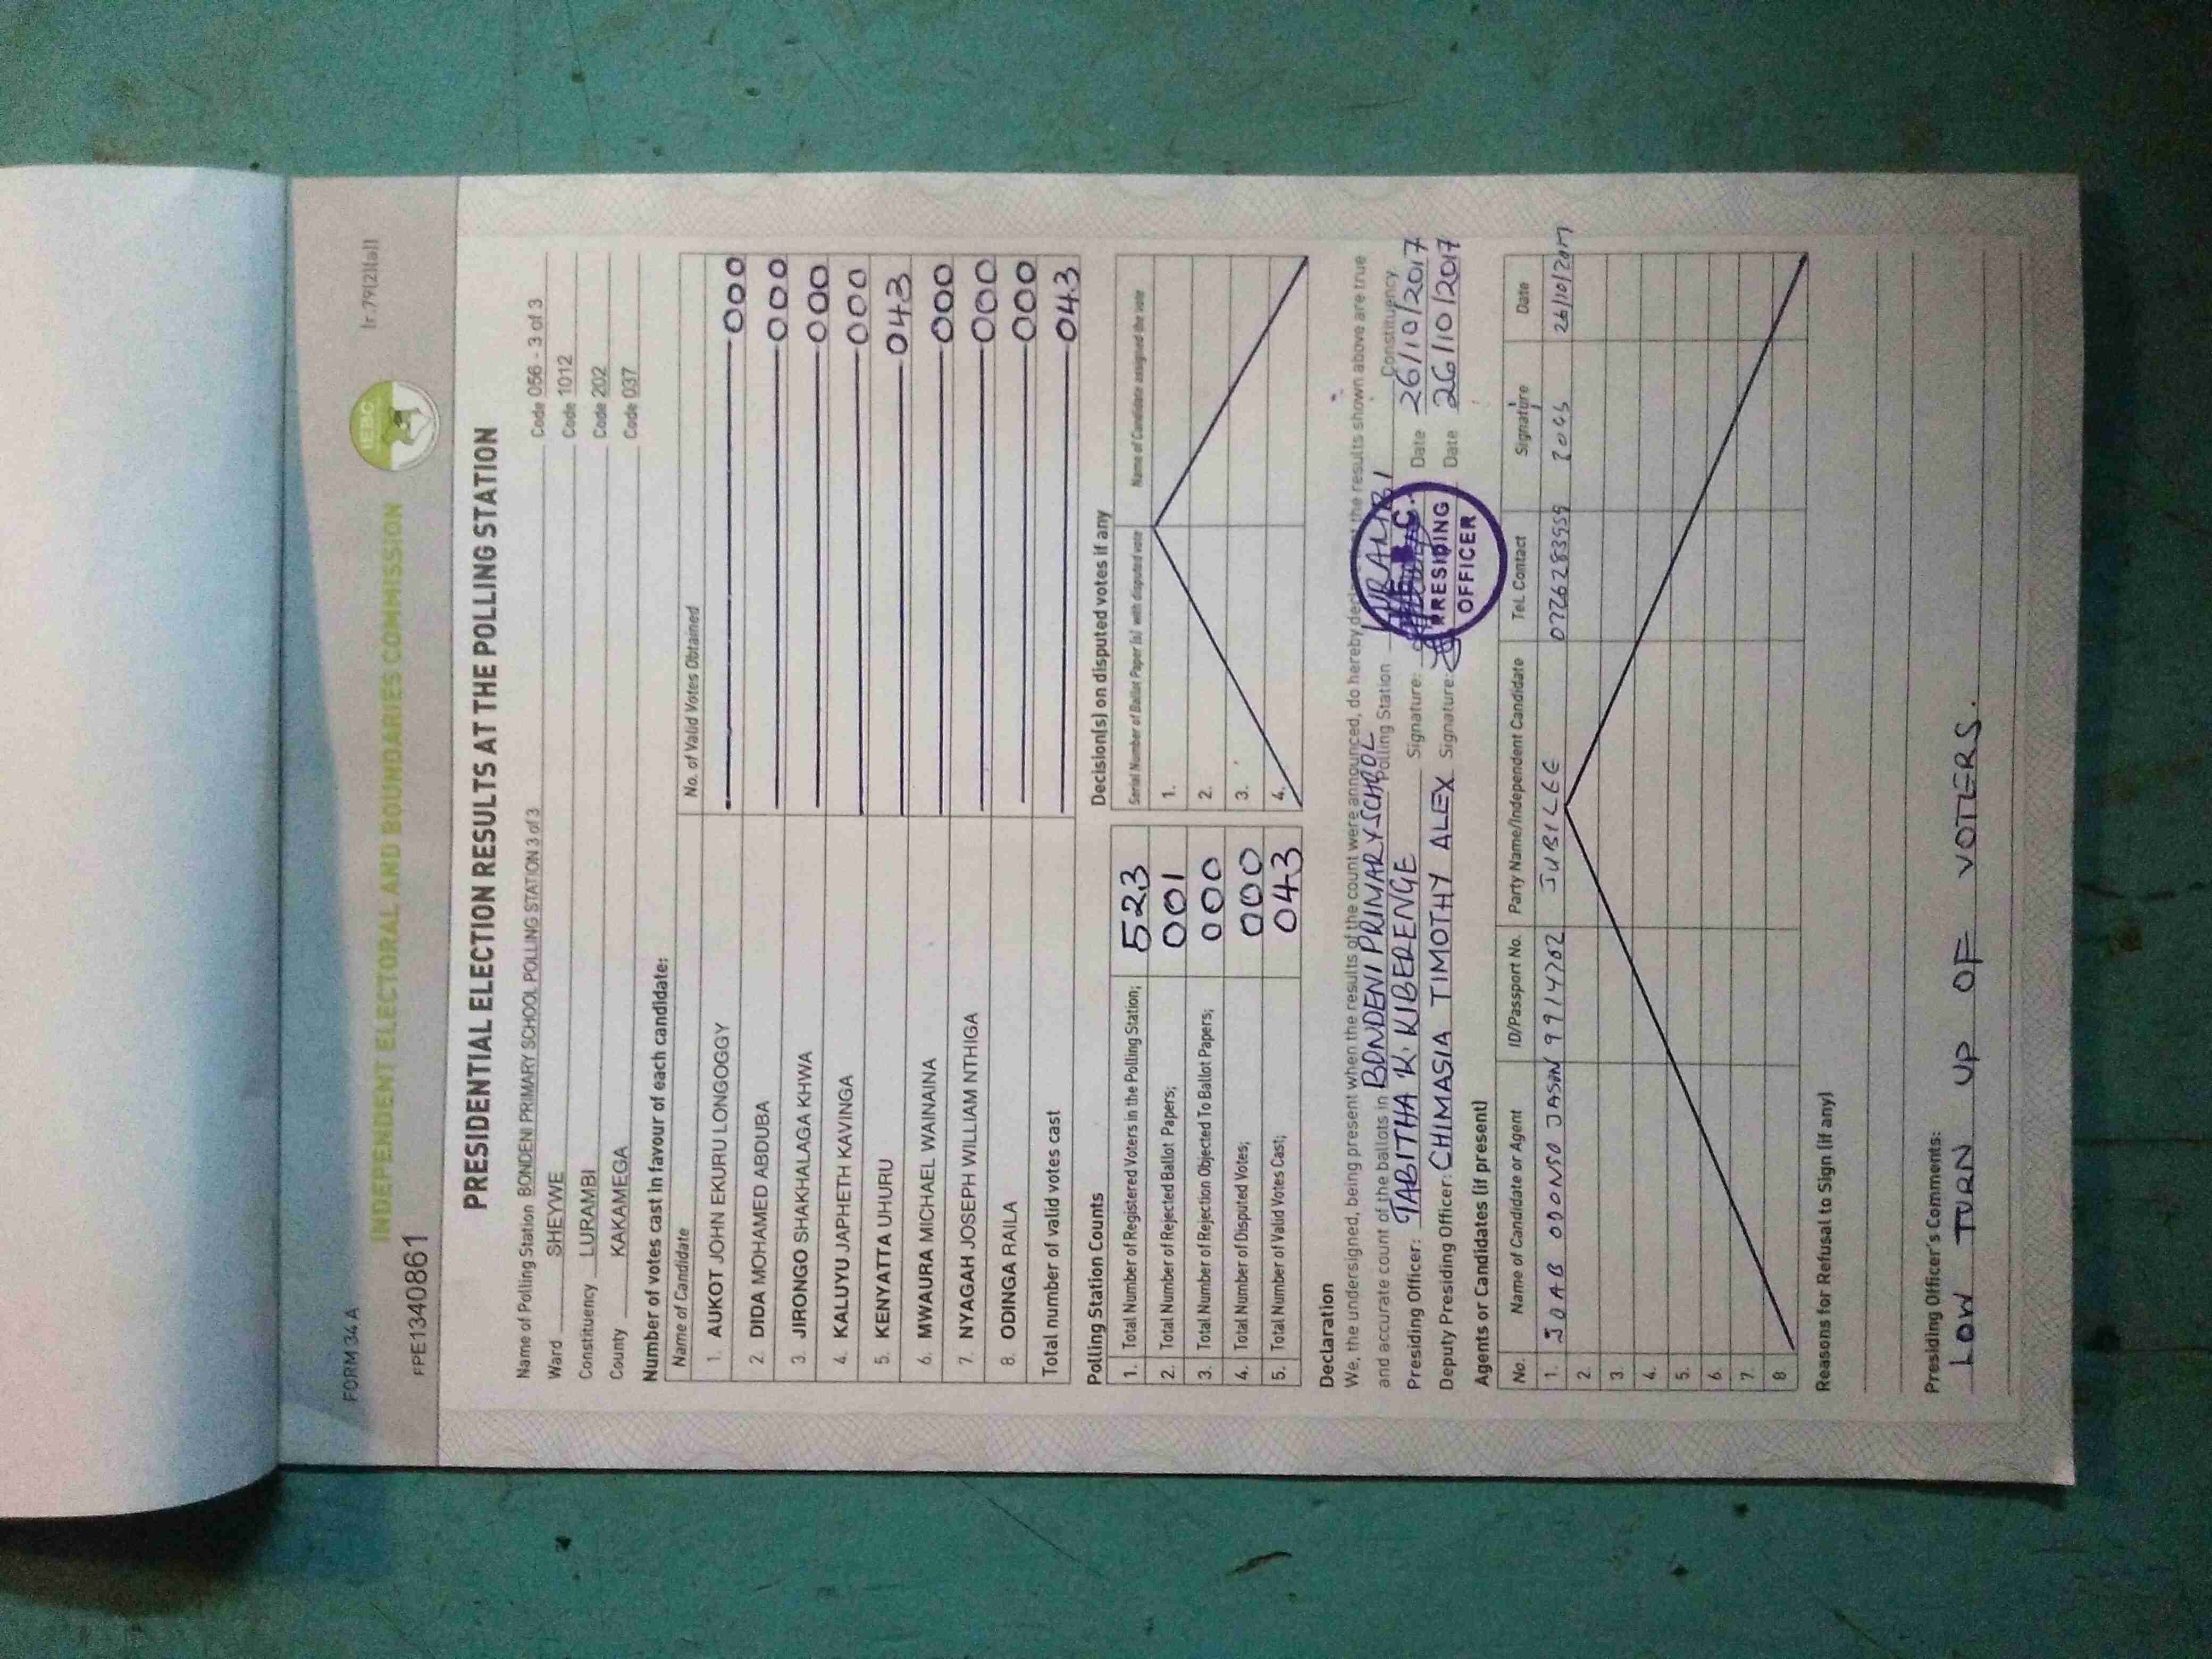 FORM 34 A
Ir.79(2)(a)]
INDEPENDENT ELECTORAL AND BOUNDARIES COMMISSION
IEBC
FPE1340861
PRESIDENTIAL ELECTION RESULTS AT THE POLLING STATION
Name of Polling Station BONDENI PRIMARY SCHOOL POLLING STATION 3 of 3 Code 056 - 3 of 3
Ward SHEYWE Code 1012
Constituency LURAMBI Code 202
County KAKAMEGA Code 037
Number of votes cast in favour of each candidate:
Name of Candidate No. of Valid Votes Obtained
1. AUKOT JOHN EKURU LONGOGGY 000
2. DIDA MOHAMED ABDUBA 000
3. JIRONGO SHAKHALAGA KHWA 000
4. KALUYU JAPHETH KAVINGA 000
5. KENYATTA UHURU 043
6. MWAURA MICHAEL WAINAINA 000
7. NYAGAH JOSEPH WILLIAM NTHIGA 000
8. ODINGA RAILA 000
Total number of valid votes cast 043
Polling Station Counts
1. Total Number of Registered Voters in the Polling Station; 523
2. Total Number of Rejected Ballot Papers; 001
3. Total Number of Rejection Objected To Ballot Papers; 000
4. Total Number of Disputed Votes; 000
5. Total Number of Valid Votes Cast; 043
Decision(s) on disputed votes if any
Serial Number of Ballot Paper (s) with disputed vote Name of Candidate assigned the vote
1.
2.
3.
4.
Declaration
We, the undersigned, being present when the results of the count were announced, do hereby the results shown above are true
and accurate count of the ballots in BONDENI PRIMARY SCHOOL Polling Station LURAMBI Constituency.
Presiding Officer: TABITHA K. KIBERENGE Signature: Date 26/10/2017
Deputy Presiding Officer: CHIMASIA TIMOTHY ALEX Signature: Date 26/10/2017
PRESIDING
OFFICER
Agents or Candidates (if present)
No. Name of Candidate or Agent ID/Passport No. Party Name/Independent Candidate Tel. Contact Signature Date
1. JOAB ODONSO JASON 99147202 JUBILEE 0726283959 26/10/2017
2.
3.
4.
5.
6.
7.
8
Reasons for Refusal to Sign (if any)
Presiding Officer's Comments:
LOW TURN UP OF VOTERS.